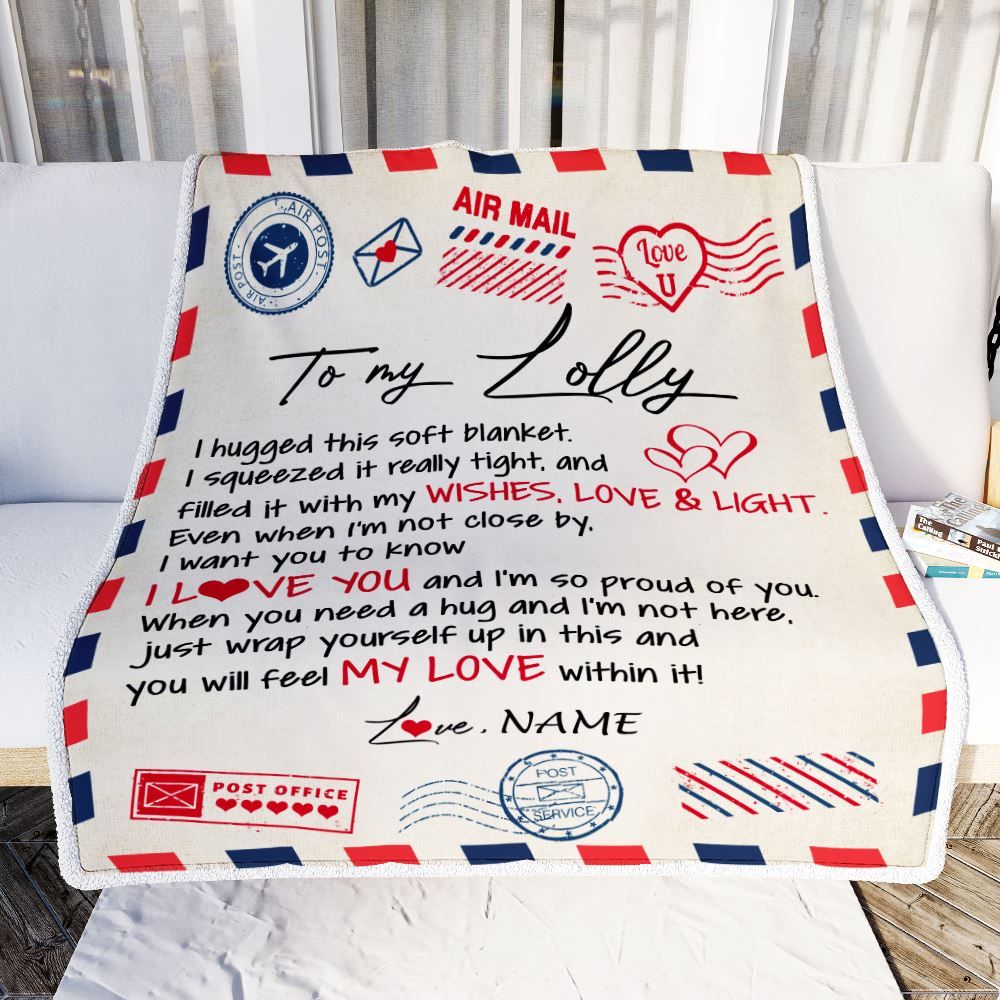 AIR POST
AIR POST
AIR MAIL
Love
U
To my Lolly
I hugged this soft blanket.
I squeezed it really tight, and
filled it with my WISHES, LOVE & LIGHT.
Even when I'm not close by,
I want you to know
I L❤VE YOU and I'm so proud of you.
When you need a hug and I'm not here,
just wrap yourself up in this and
you will feel MY LOVE within it!
L❤ve, NAME
POST OFFICE
POST
SERVICE
The
Calling
Paul